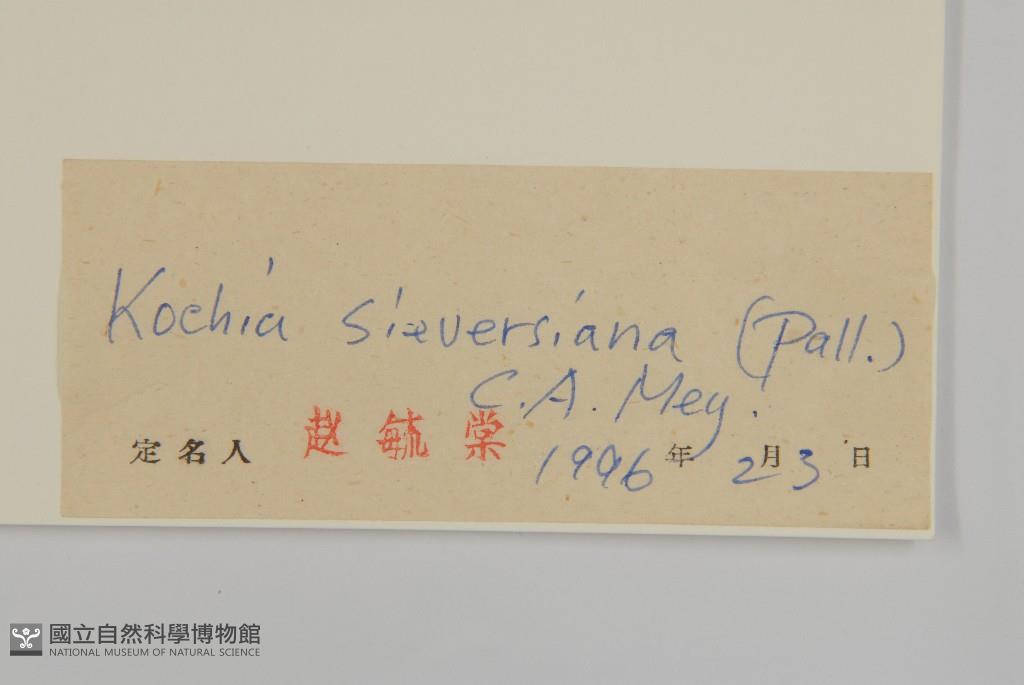 Kochia sieversiana (Pall.)
C.A. Mey.
定名人 赵毓棠 1996年2月3日
國立自然科學博物館
NATIONAL MUSEUM OF NATURAL SCIENCE